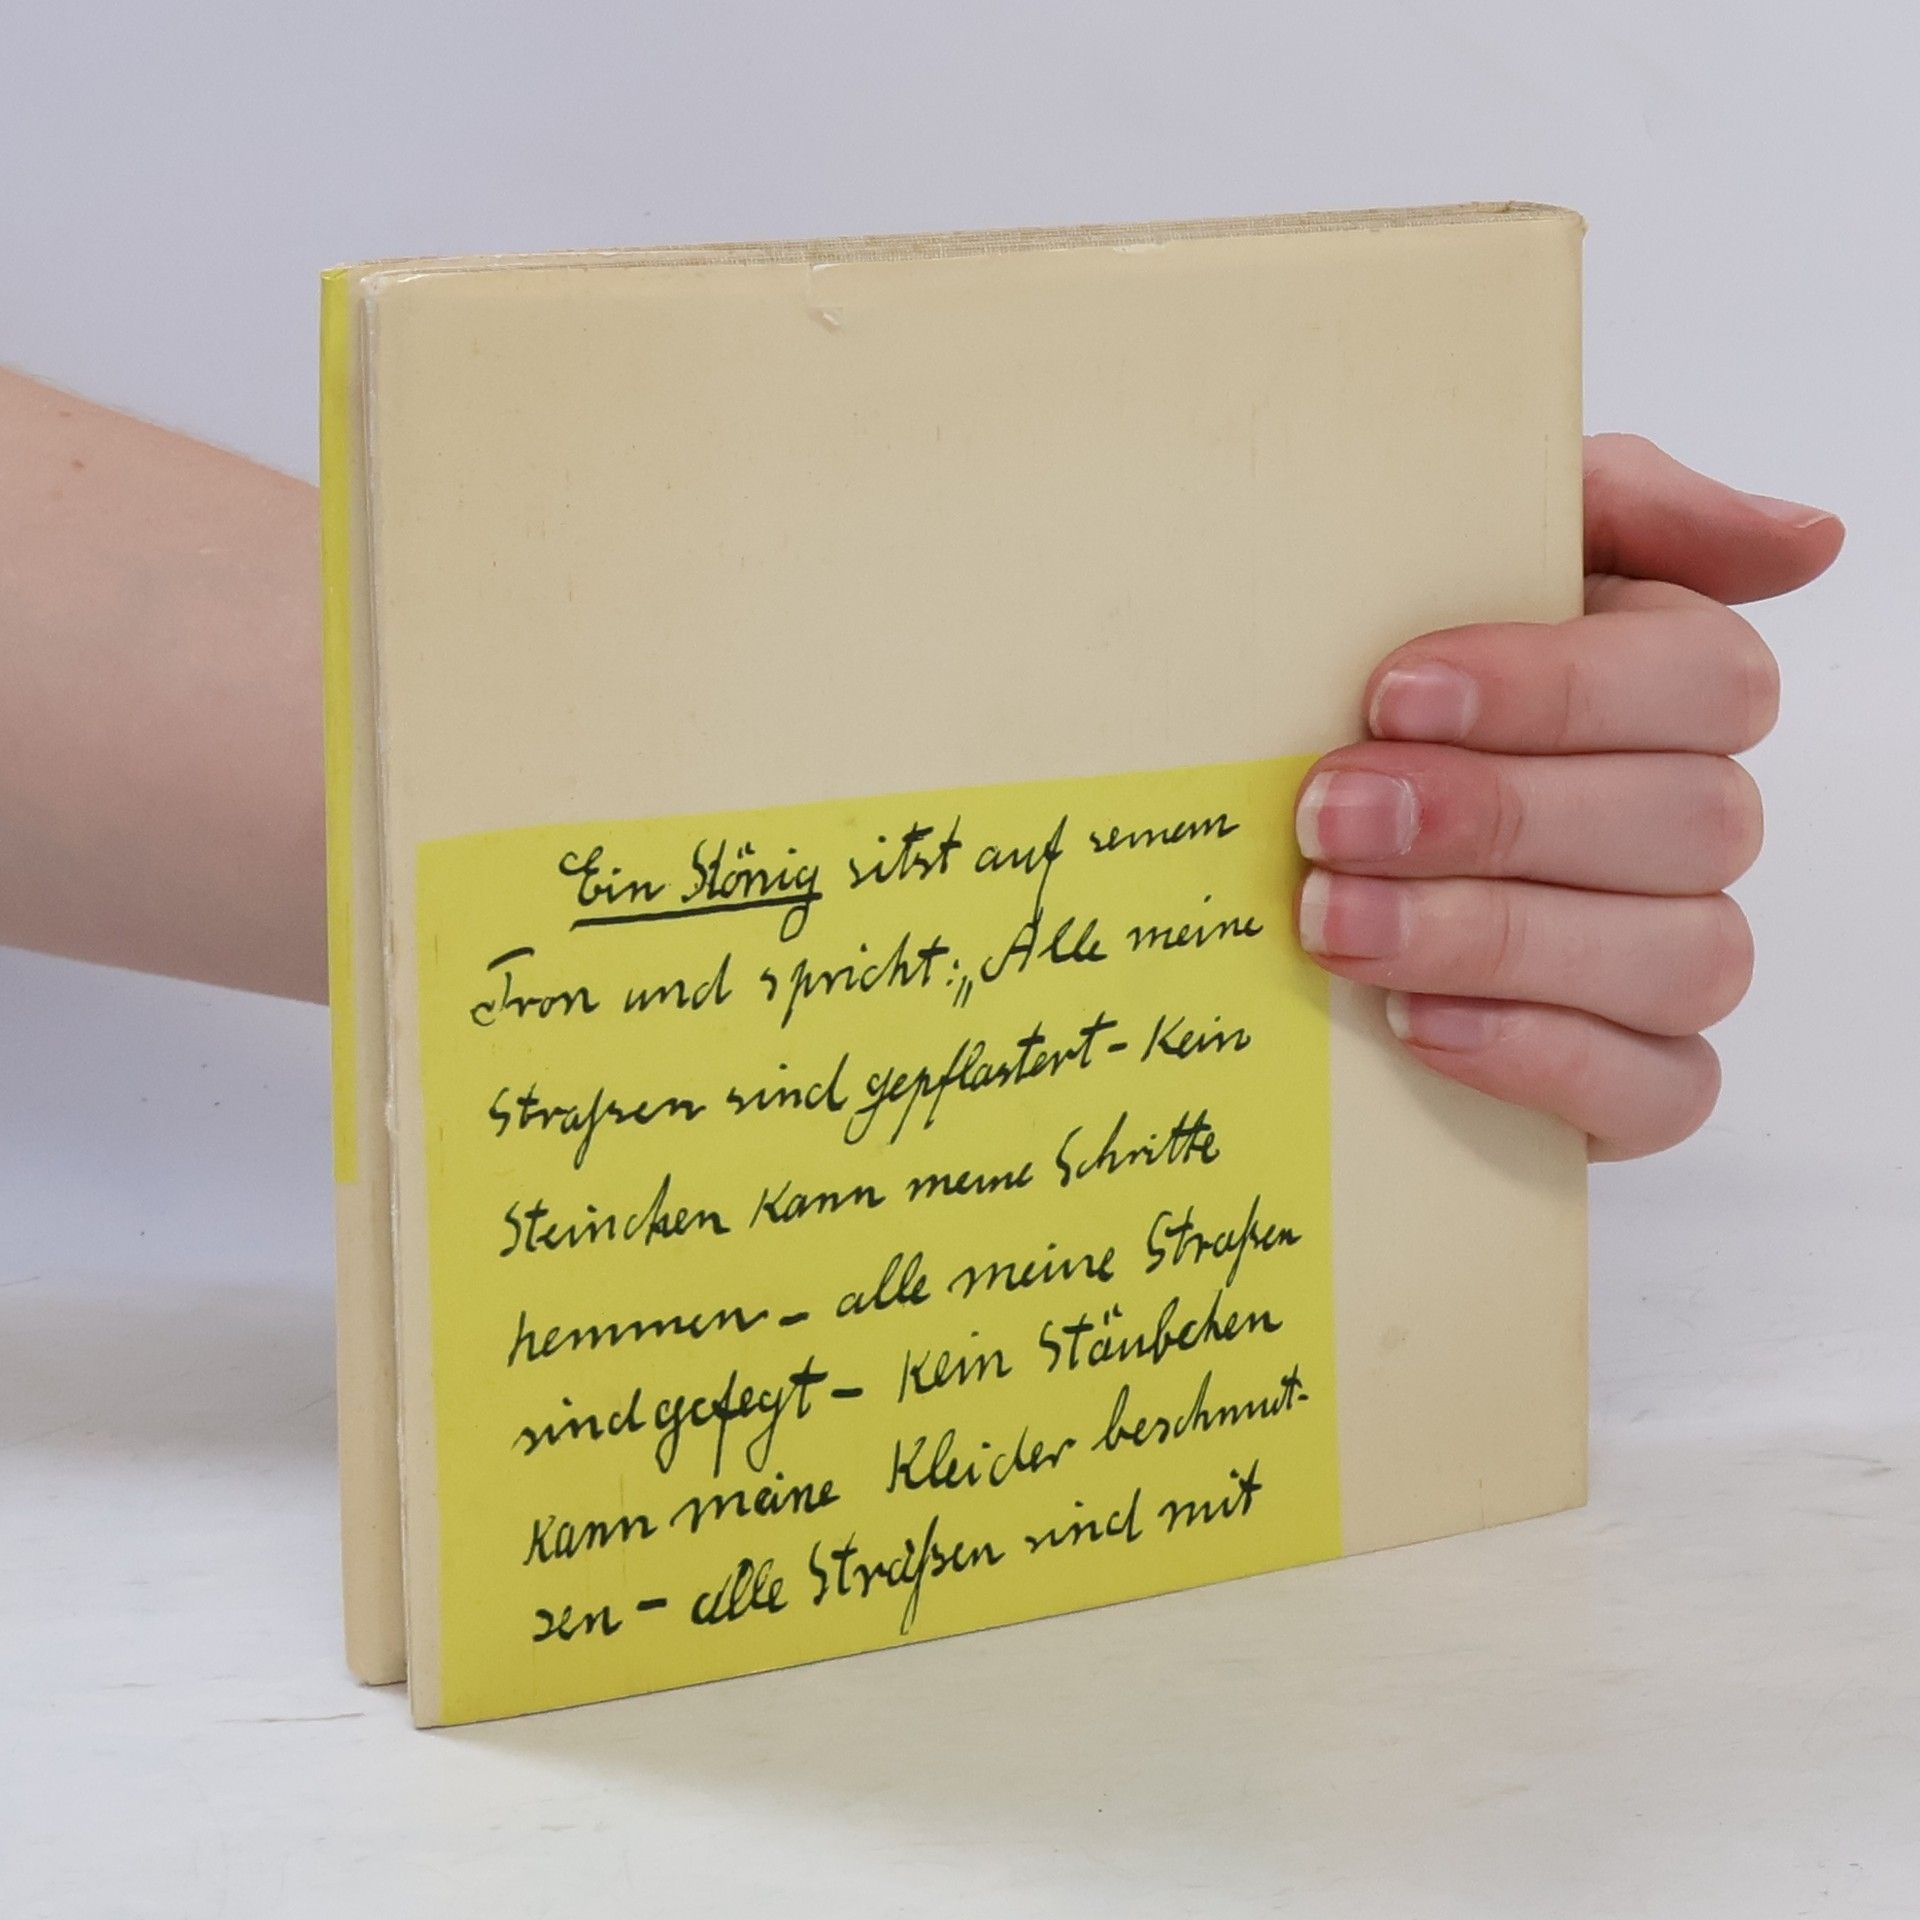 Ein König sitst auf seinem
Tron und spricht: „Alle meine
Straßen sind gepflastert - Kein
Steinchen kann meine Schritte
hemmen - alle meine Straßen
sind gefegt - Kein Stäubchen
kann meine Kleider beschmut-
sen - alle Straßen sind mit